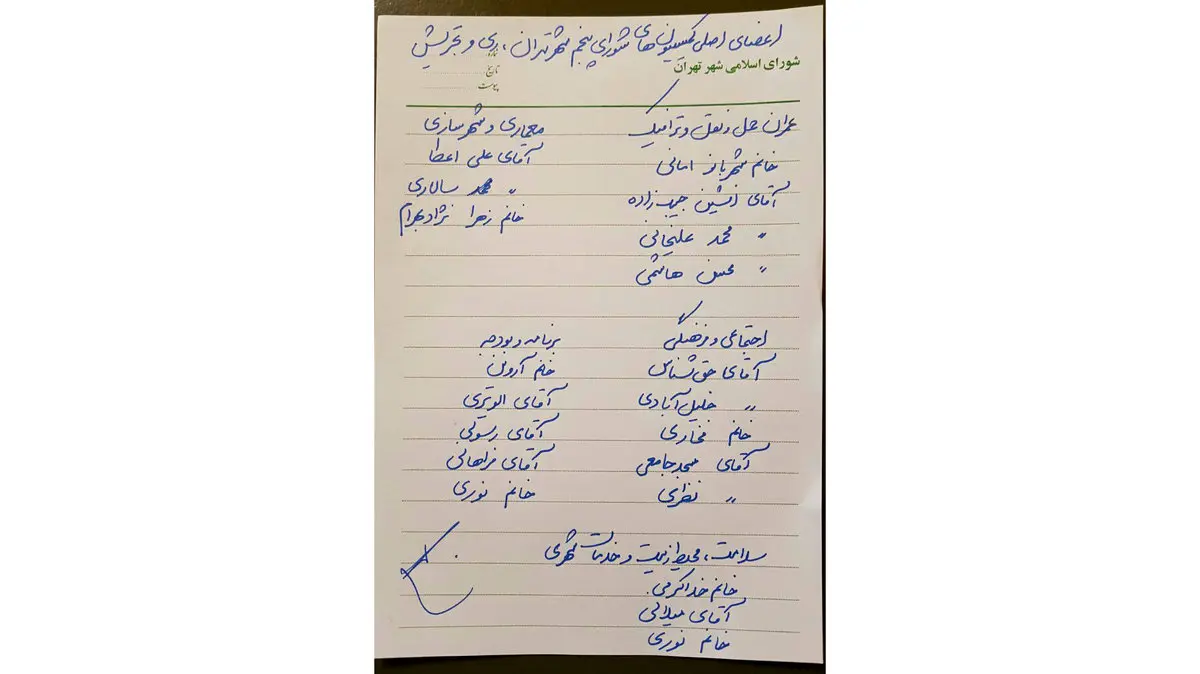 اعضای اصلی کمیسیون های شورای پنجم شهر تهران، ری و تجریش
شورای اسلامی شهر تهران
تاریخ
پیوست
عمران حمل و نقل و ترافیک
خانم شهربانو امانی
آقای افشین حبیب زاده
〃 محمد علیخانی
〃 محسن هاشمی
معماری و شهرسازی
آقای علی اعطا
〃 محمد سالاری
خانم زهرا نژاد بهرام
اجتماعی و فرهنگی
آقای حق شناس
〃 خلیل آبادی
خانم فخاری
آقای مسجد جامعی
〃 نظری
برنامه و بودجه
خانم آروین
آقای الویری
آقای رسولی
آقای فراهانی
خانم نوری
سلامت، محیط زیست و خدمات شهری
خانم خداکرمی
آقای میلانی
خانم نوری